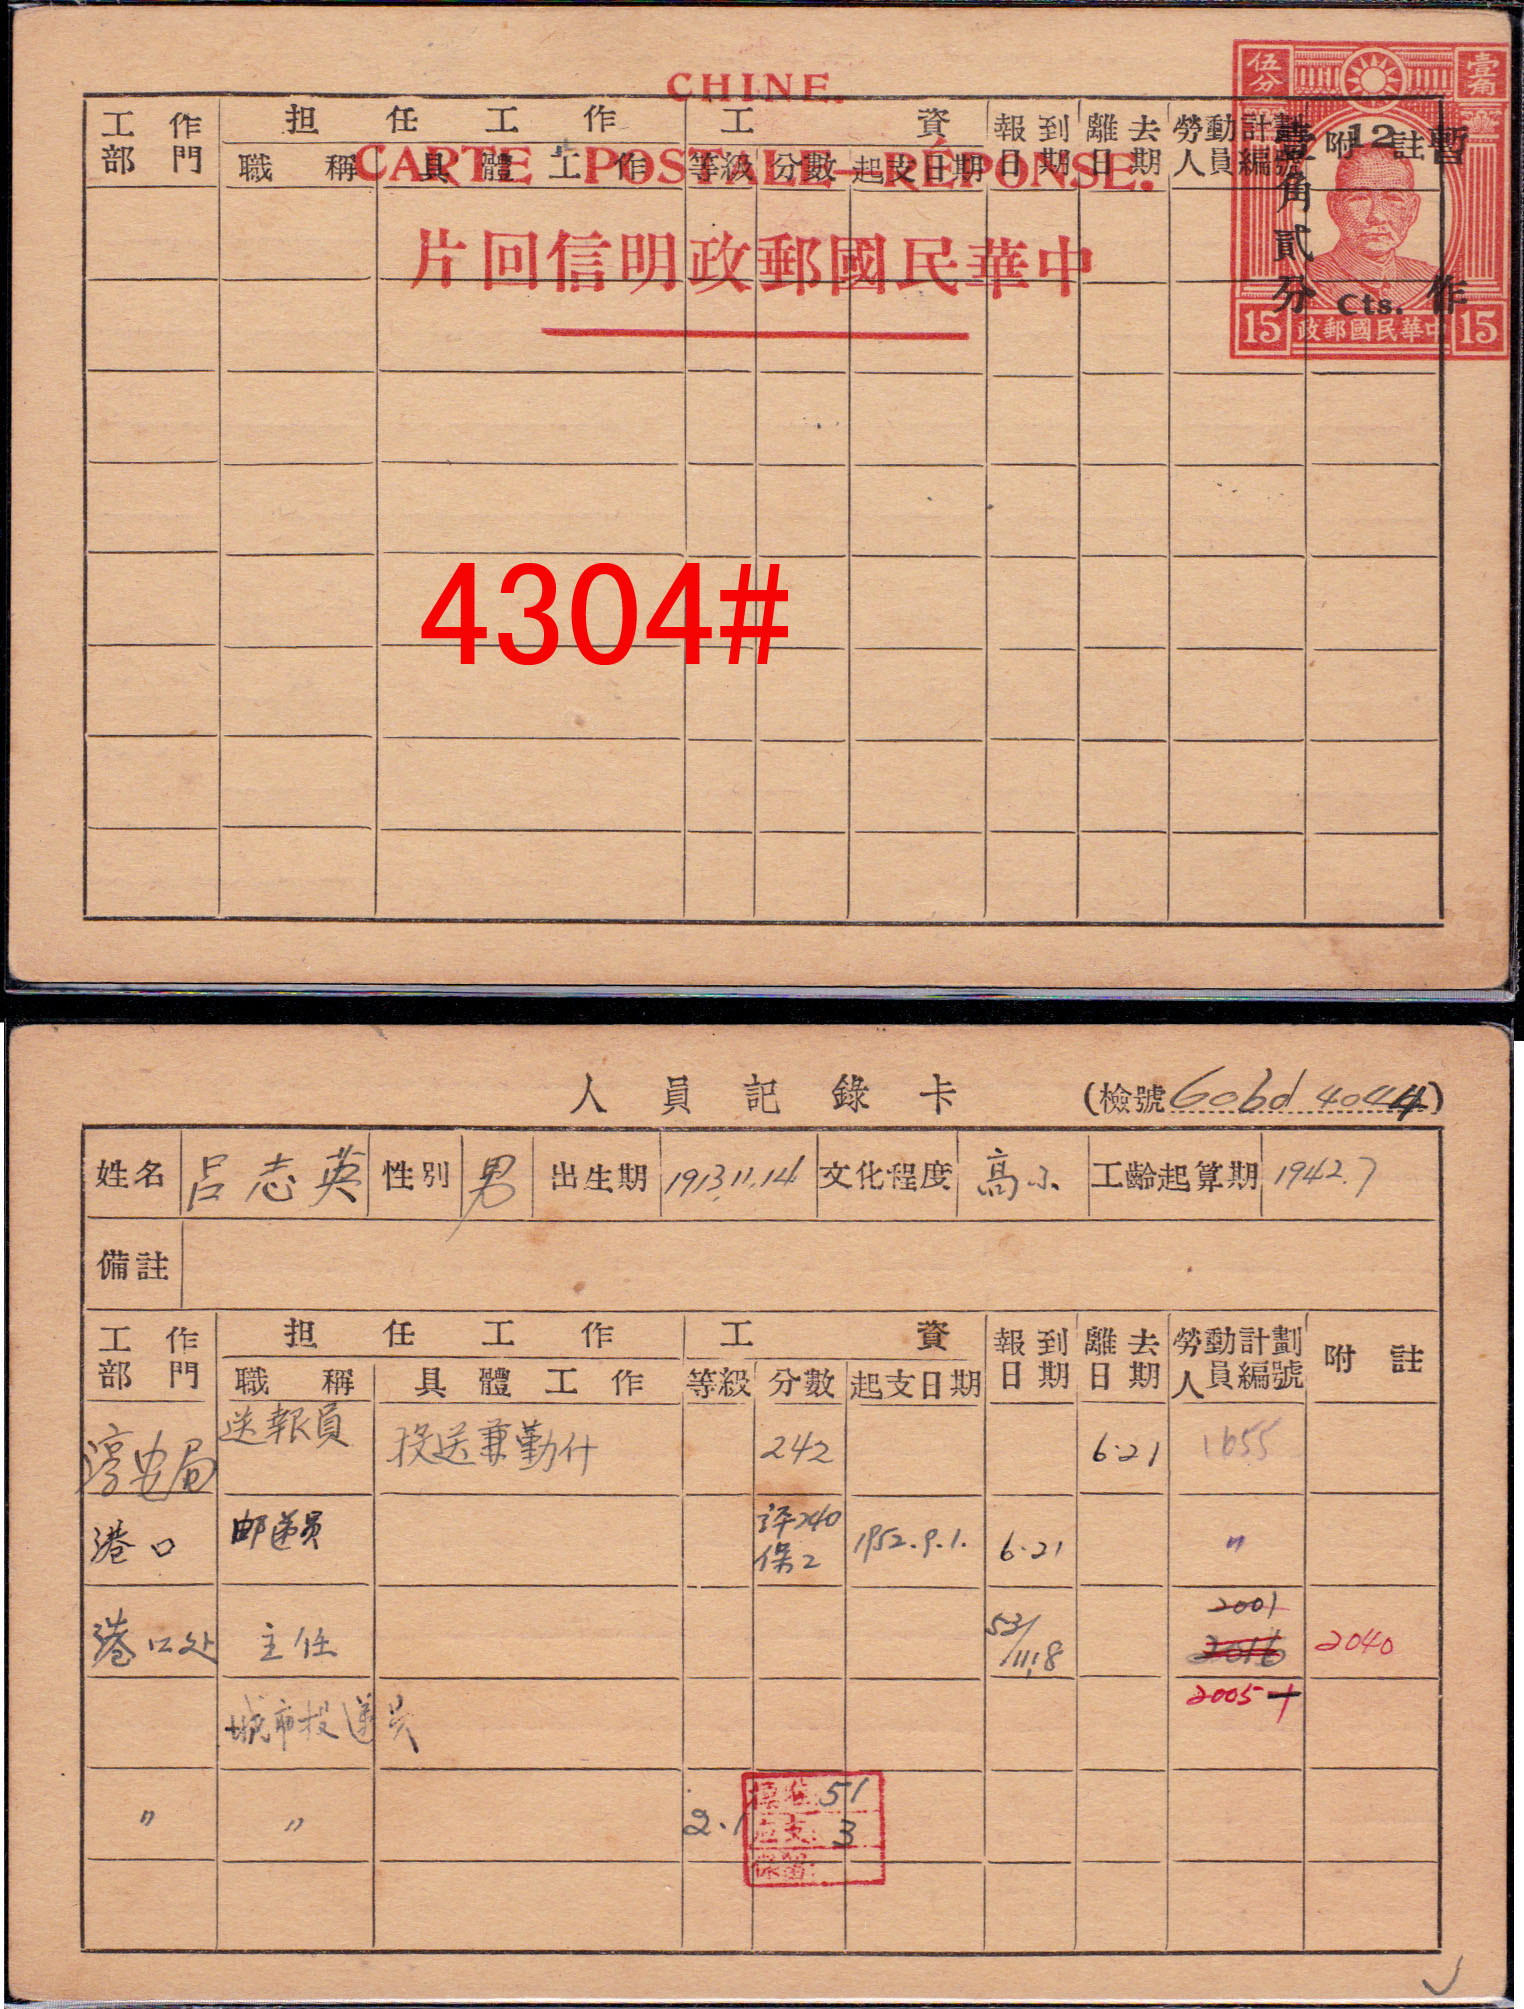 CHINE.
CARTE POSTALE—RÉPONSE.
中華民國郵政明信回片
伍分 壹角
暫作
12
壹角貳分
Cts.
15 中華民國郵政 15
工作部門 担任工作 工資 報到日期 離去日期 勞動計劃人員編號 附註
職稱 具體工作 等級 分數 起支日期
4304#
人員記錄卡 (檢號 60bd 4044)
姓名 呂志英 性別 男 出生期 1913.11.14 文化程度 高小 工齡起算期 1942.7
備註
工作部門 担任工作 工資 報到日期 離去日期 勞動計劃人員編號 附註
職稱 具體工作 等級 分數 起支日期
电局 送報員 投送兼勤什 242 6.21 1655
港口 邮递員 评240 保2 1952.9.1. 6.21 〃
港口处 主任 53/11.8 2001 2016 2040
城市投递员 2005-1
〃 〃 2.1 標准:51
应支:3
保留: